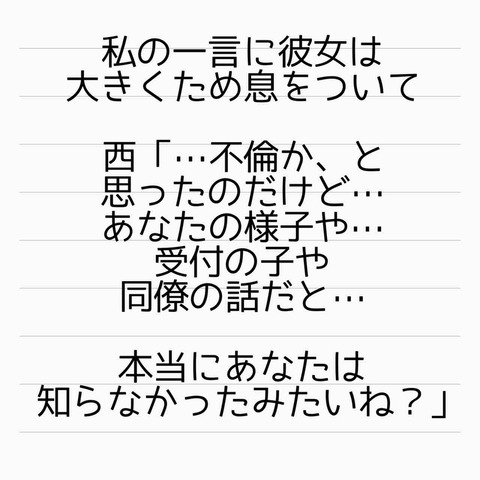 私の一言に彼女は
大きくため息をついて
西「…不倫か、と
思ったのだけど…
あなたの様子や…
受付の子や
同僚の話だと…
本当にあなたは
知らなかったみたいね？」